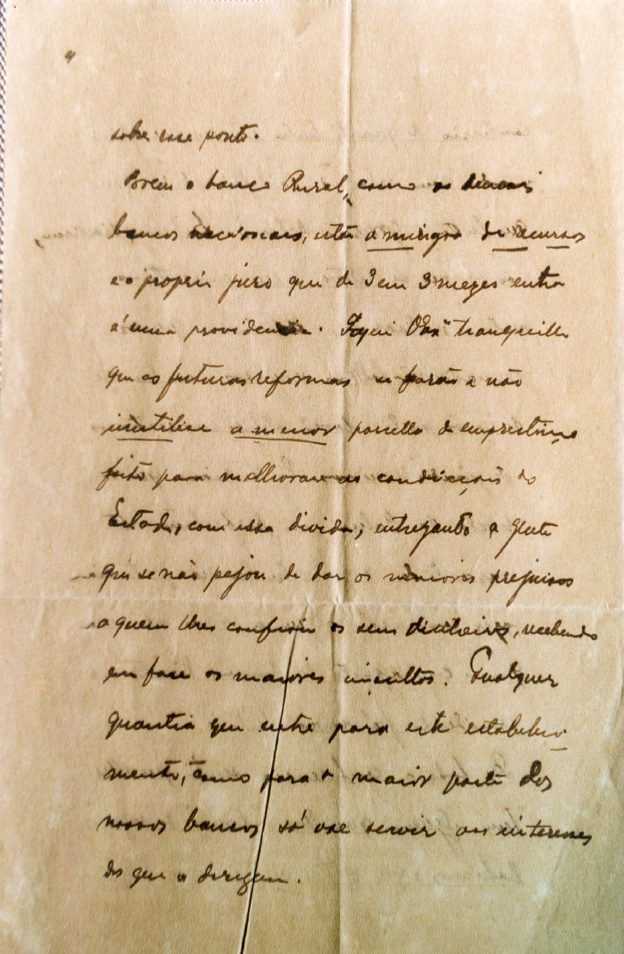 4
sobre esse ponto.
Porem o banco Rural, como os demais
bancos nacionaes, está a mingoa de recursos
e o proprio juro que de 3 em 3 mezes entra
é uma providencia. Fique V. Exa tranquillo
que as futuras reformas se farão e não
inutilise a menor parcella do emprestimo
feito para melhorar as condicções do
Estado, com essa divida, entregando a gente
que se não pejou de dar os maiores prejuisos
a quem lhes confiou os seus dinheiros, recebendo
em face os maiores insultos. Qualquer
quantia que entre para este estabeleci-
mento, como para a maior parte dos
nossos bancos só vae servir aos interesses
dos que o dirigem.